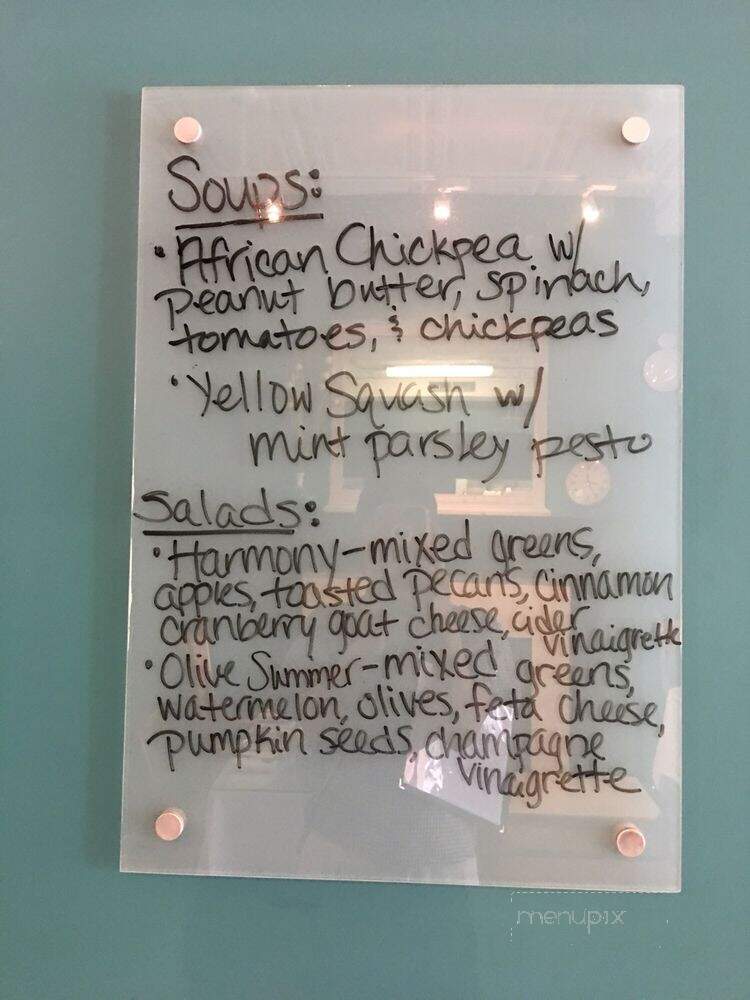 Soups:
• African Chickpea w/
peanut butter, spinach,
tomatoes, & chickpeas
• Yellow Squash w/
mint parsley pesto
Salads:
• Harmony-mixed greens,
apples, toasted pecans, cinnamon
cranberry goat cheese, cider
vinaigrette
• Olive Summer-mixed greens,
watermelon, olives, feta cheese,
pumpkin seeds, champagne
vinaigrette
menupix